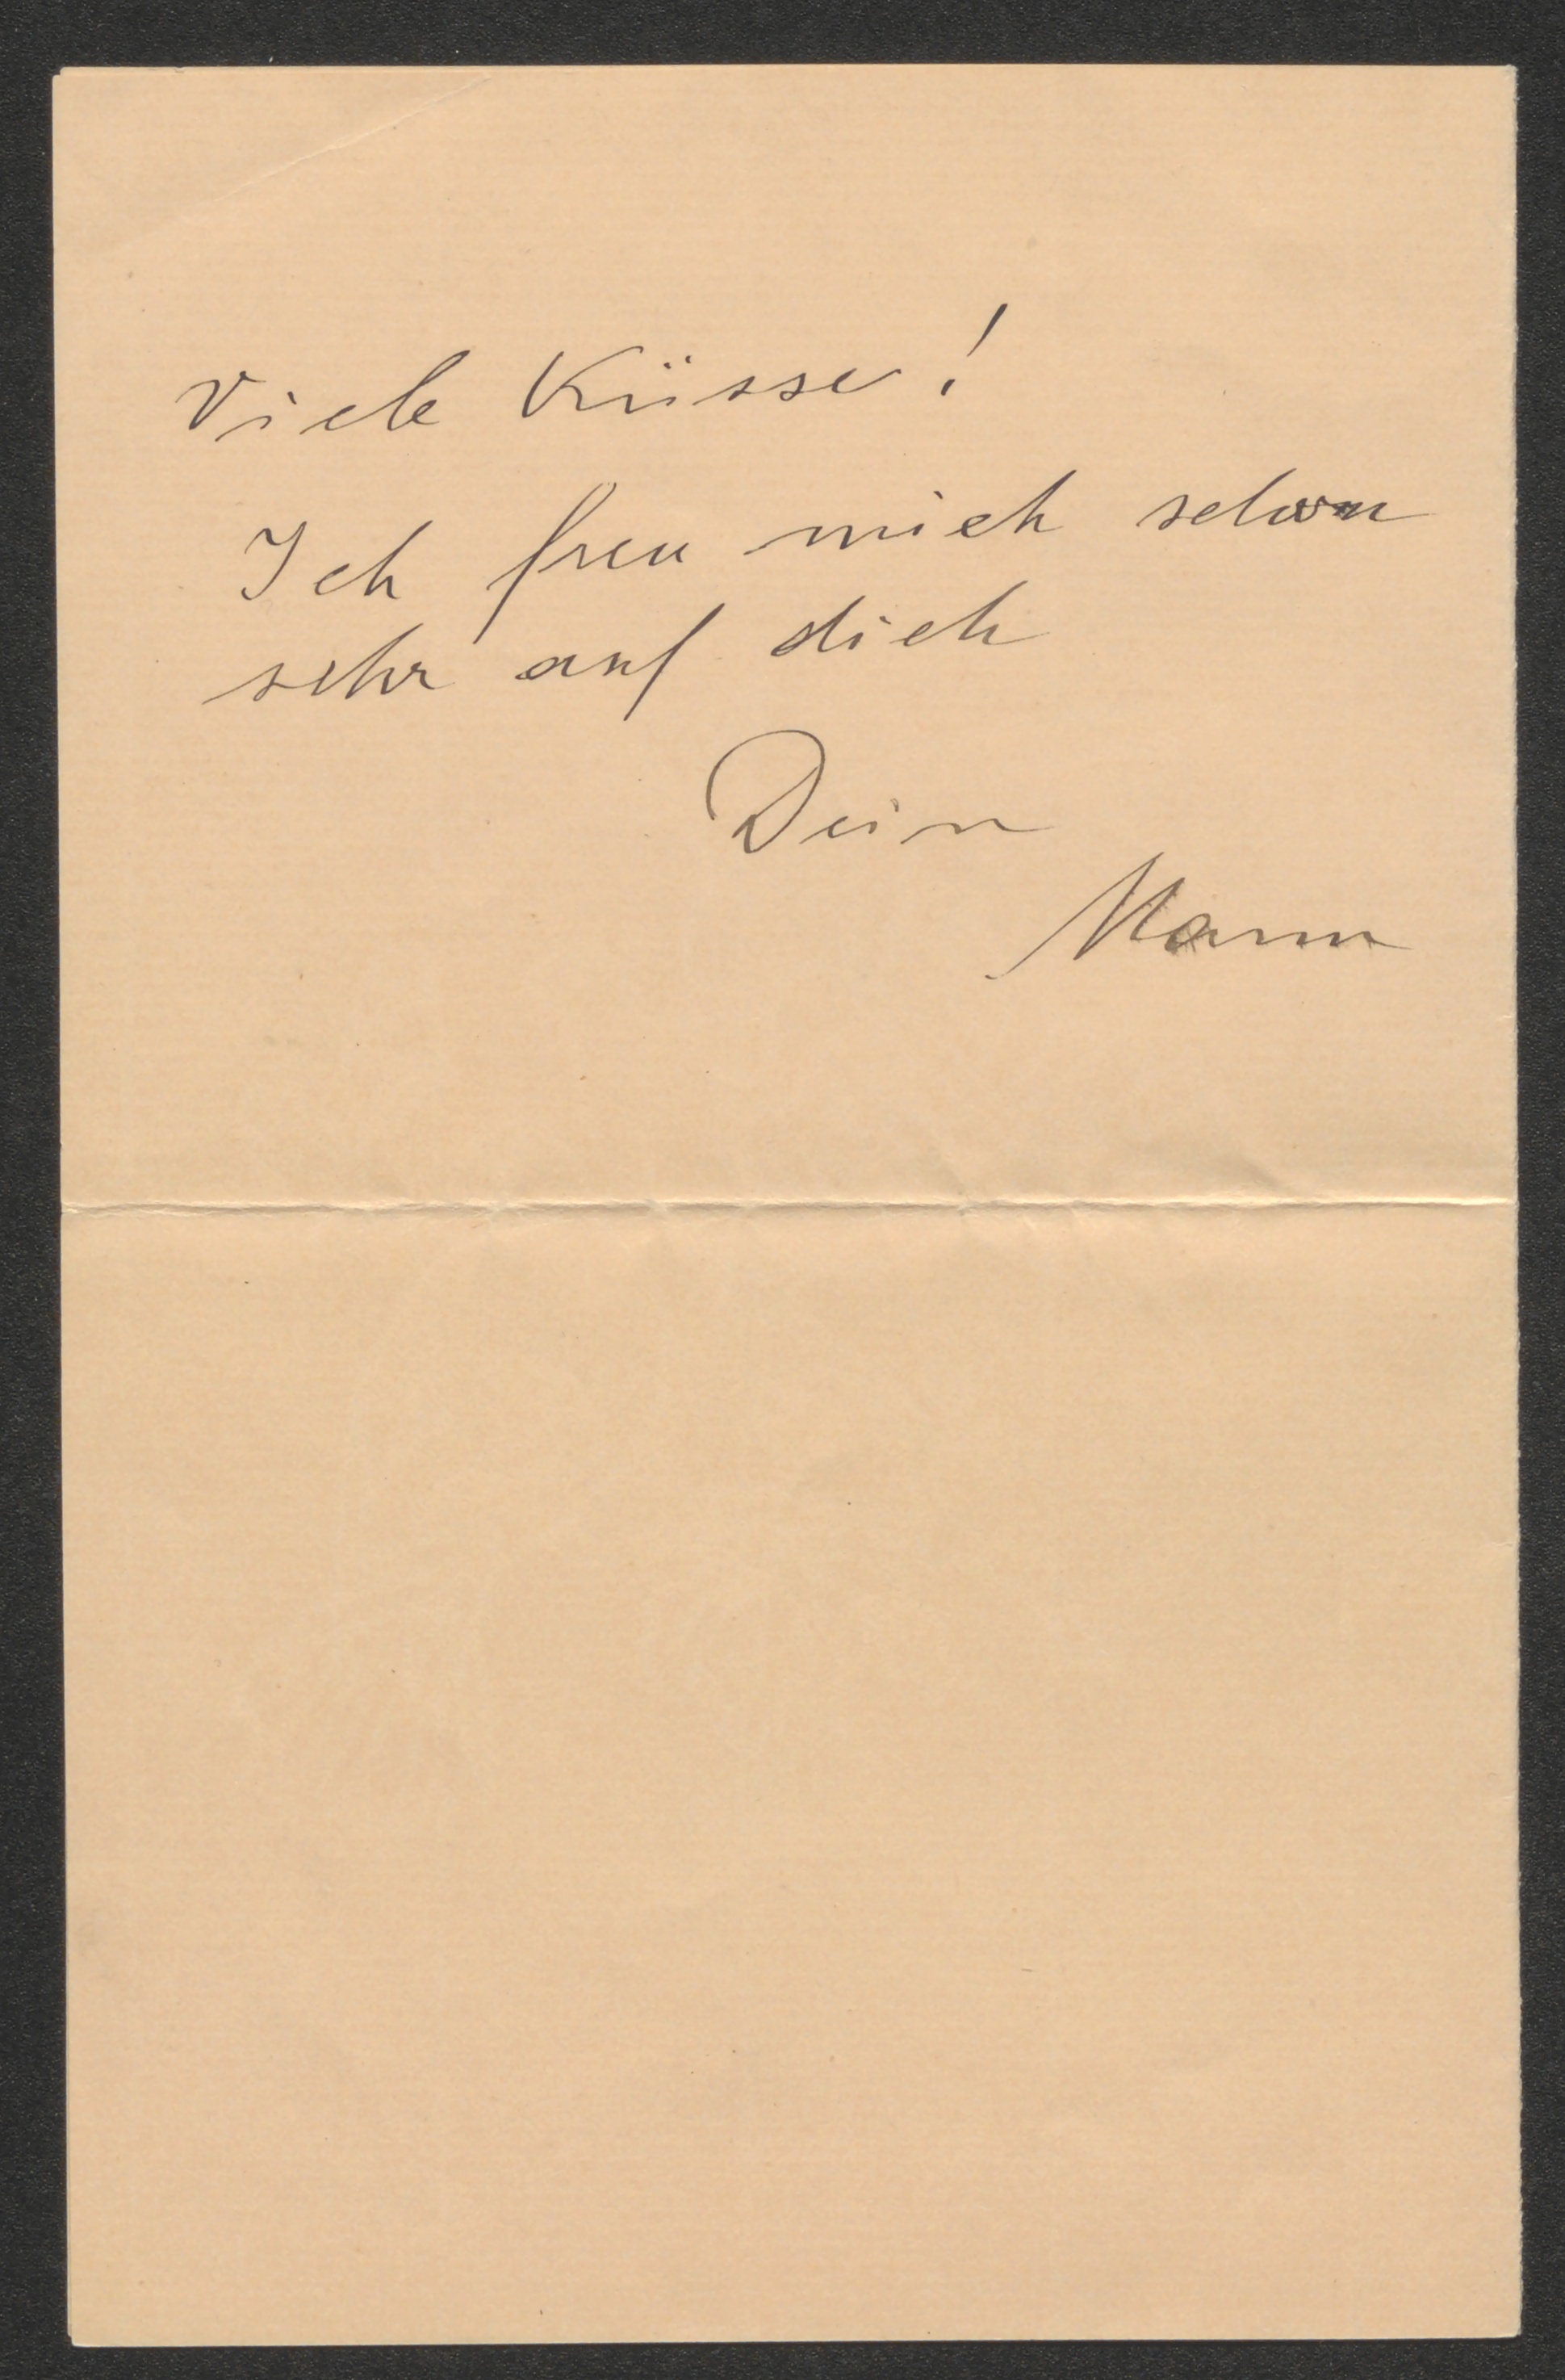 Viele Küsse!
Ich freu mich schon
sehr auf dich
Dein
Mann